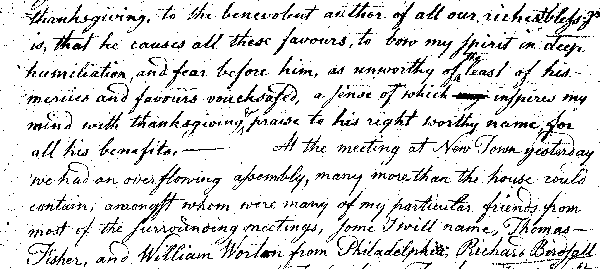 thanksgiving, to the benevolent author of all our richest blessings
is, that he causes all these favours, to bow my spirit in deep
humiliation, and fear before him, as unworthy of the least of his
mercies and favours vouchsafed, a sense of which inspires my
mind with thanksgiving, praise to his right worthy name, for
all his benefits. — At the meeting at New Town yesterday
we had an overflowing assembly, many more than the house could
contain; amongst whom were many of my particular friends from
most of the surrounding meetings, some I will name, Thomas
Fisher, and William from Philadelphia, Richard Birdsall